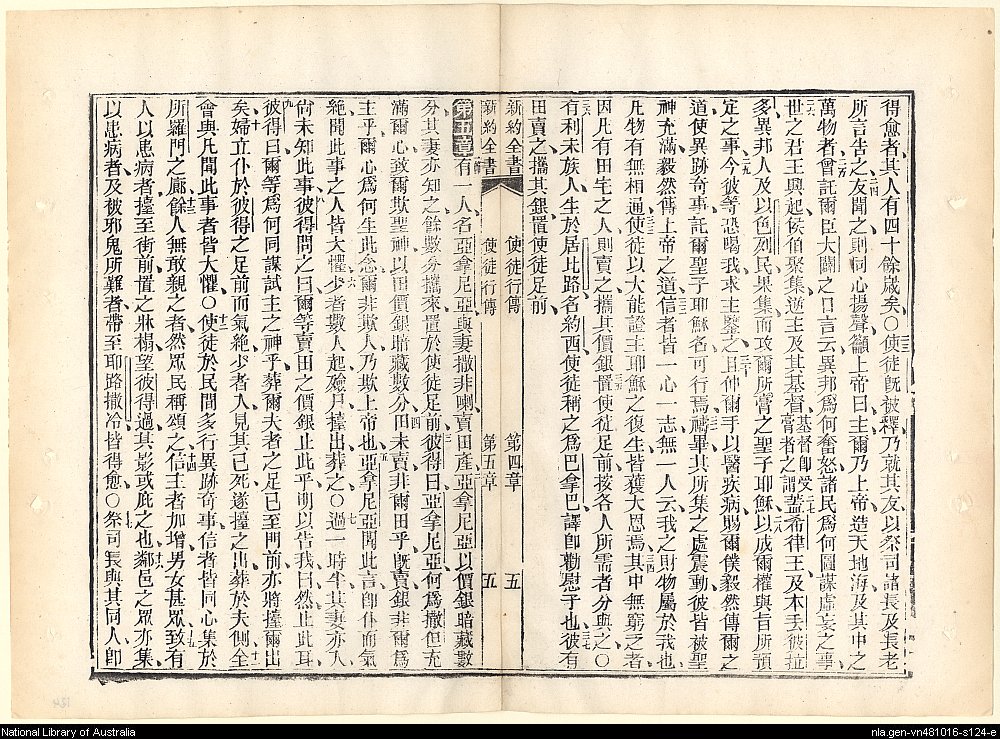 得愈者其人有四十餘歲矣〇使徒旣被釋乃就其友以祭司諸長及長老
所言告之友聞之則同心揚聲籲上帝曰主爾乃上帝造天地海及其中之
萬物者曾託爾臣大闢之口言云異邦爲何奮怒諸民爲何圖謀虛妄之事
世之君王興起侯伯聚集逆主及其基督基督卽受膏者之謂蓋希律王及本丢彼拉
多異邦人及以色列民果集而攻爾所膏之聖子耶穌以成爾權與旨所預
定之事今彼等恐喝我求主鑒之且伸爾手以醫疾病賜爾僕毅然傳爾之
道使異跡奇事託爾聖子耶穌名可行焉禱畢其所集之處震動彼皆被聖
神充滿毅然傳上帝之道信者皆一心一志無一人云我之財物屬於我也
凡物有無相通使徒以大能證主耶穌之復生皆獲大恩焉其中無窮乏者
因凡有田宅之人則賣之攜其價銀置使徒足前按各人所需者分與之〇
有利未族人生於居比路名約西使徒稱之爲巴拿巴譯卽勸慰子也彼有
田賣之攜其銀置使徒足前
新約全書 使徒行傳 第四章 五
新約全書 使徒行傳 第五章 五
第五章有一人名亞拿尼亞與妻撒非喇賣田產亞拿尼亞以價銀暗藏數
分其妻亦知之餘數分攜來置於使徒足前彼得曰亞拿尼亞何爲撒但充
滿爾心致爾欺聖神以田價銀暗藏數分田未賣非爾田乎旣賣銀非爾爲
主乎爾心爲何生此念爾非欺人乃欺上帝也亞拿尼亞聞此言卽仆而氣
絕聞此事之人皆大懼少者數人起殮尸擡出葬之〇過一時半其妻亦入
尙未知此事彼得問之曰爾等賣田之價銀止此乎明以告我曰然止此耳
彼得曰爾等爲何同謀試主之神乎葬爾夫者之足已至門前亦將擡爾出
矣婦立仆於彼得之足前而氣絕少者入見其已死遂擡之出葬於夫側全
會與凡聞此事者皆大懼〇使徒於民間多行異跡奇事信者皆同心集於
所羅門之廊餘人無敢親之者然眾民稱頌之信主者加增男女甚眾致有
人以患病者擡至街前置之牀榻望彼得過其影或庇之也鄰邑之眾亦集
以患病者及被邪鬼所難者帶至耶路撒冷皆得愈〇祭司長與其同人卽
National Library of Australia
nla.gen-vn481016-s124-e